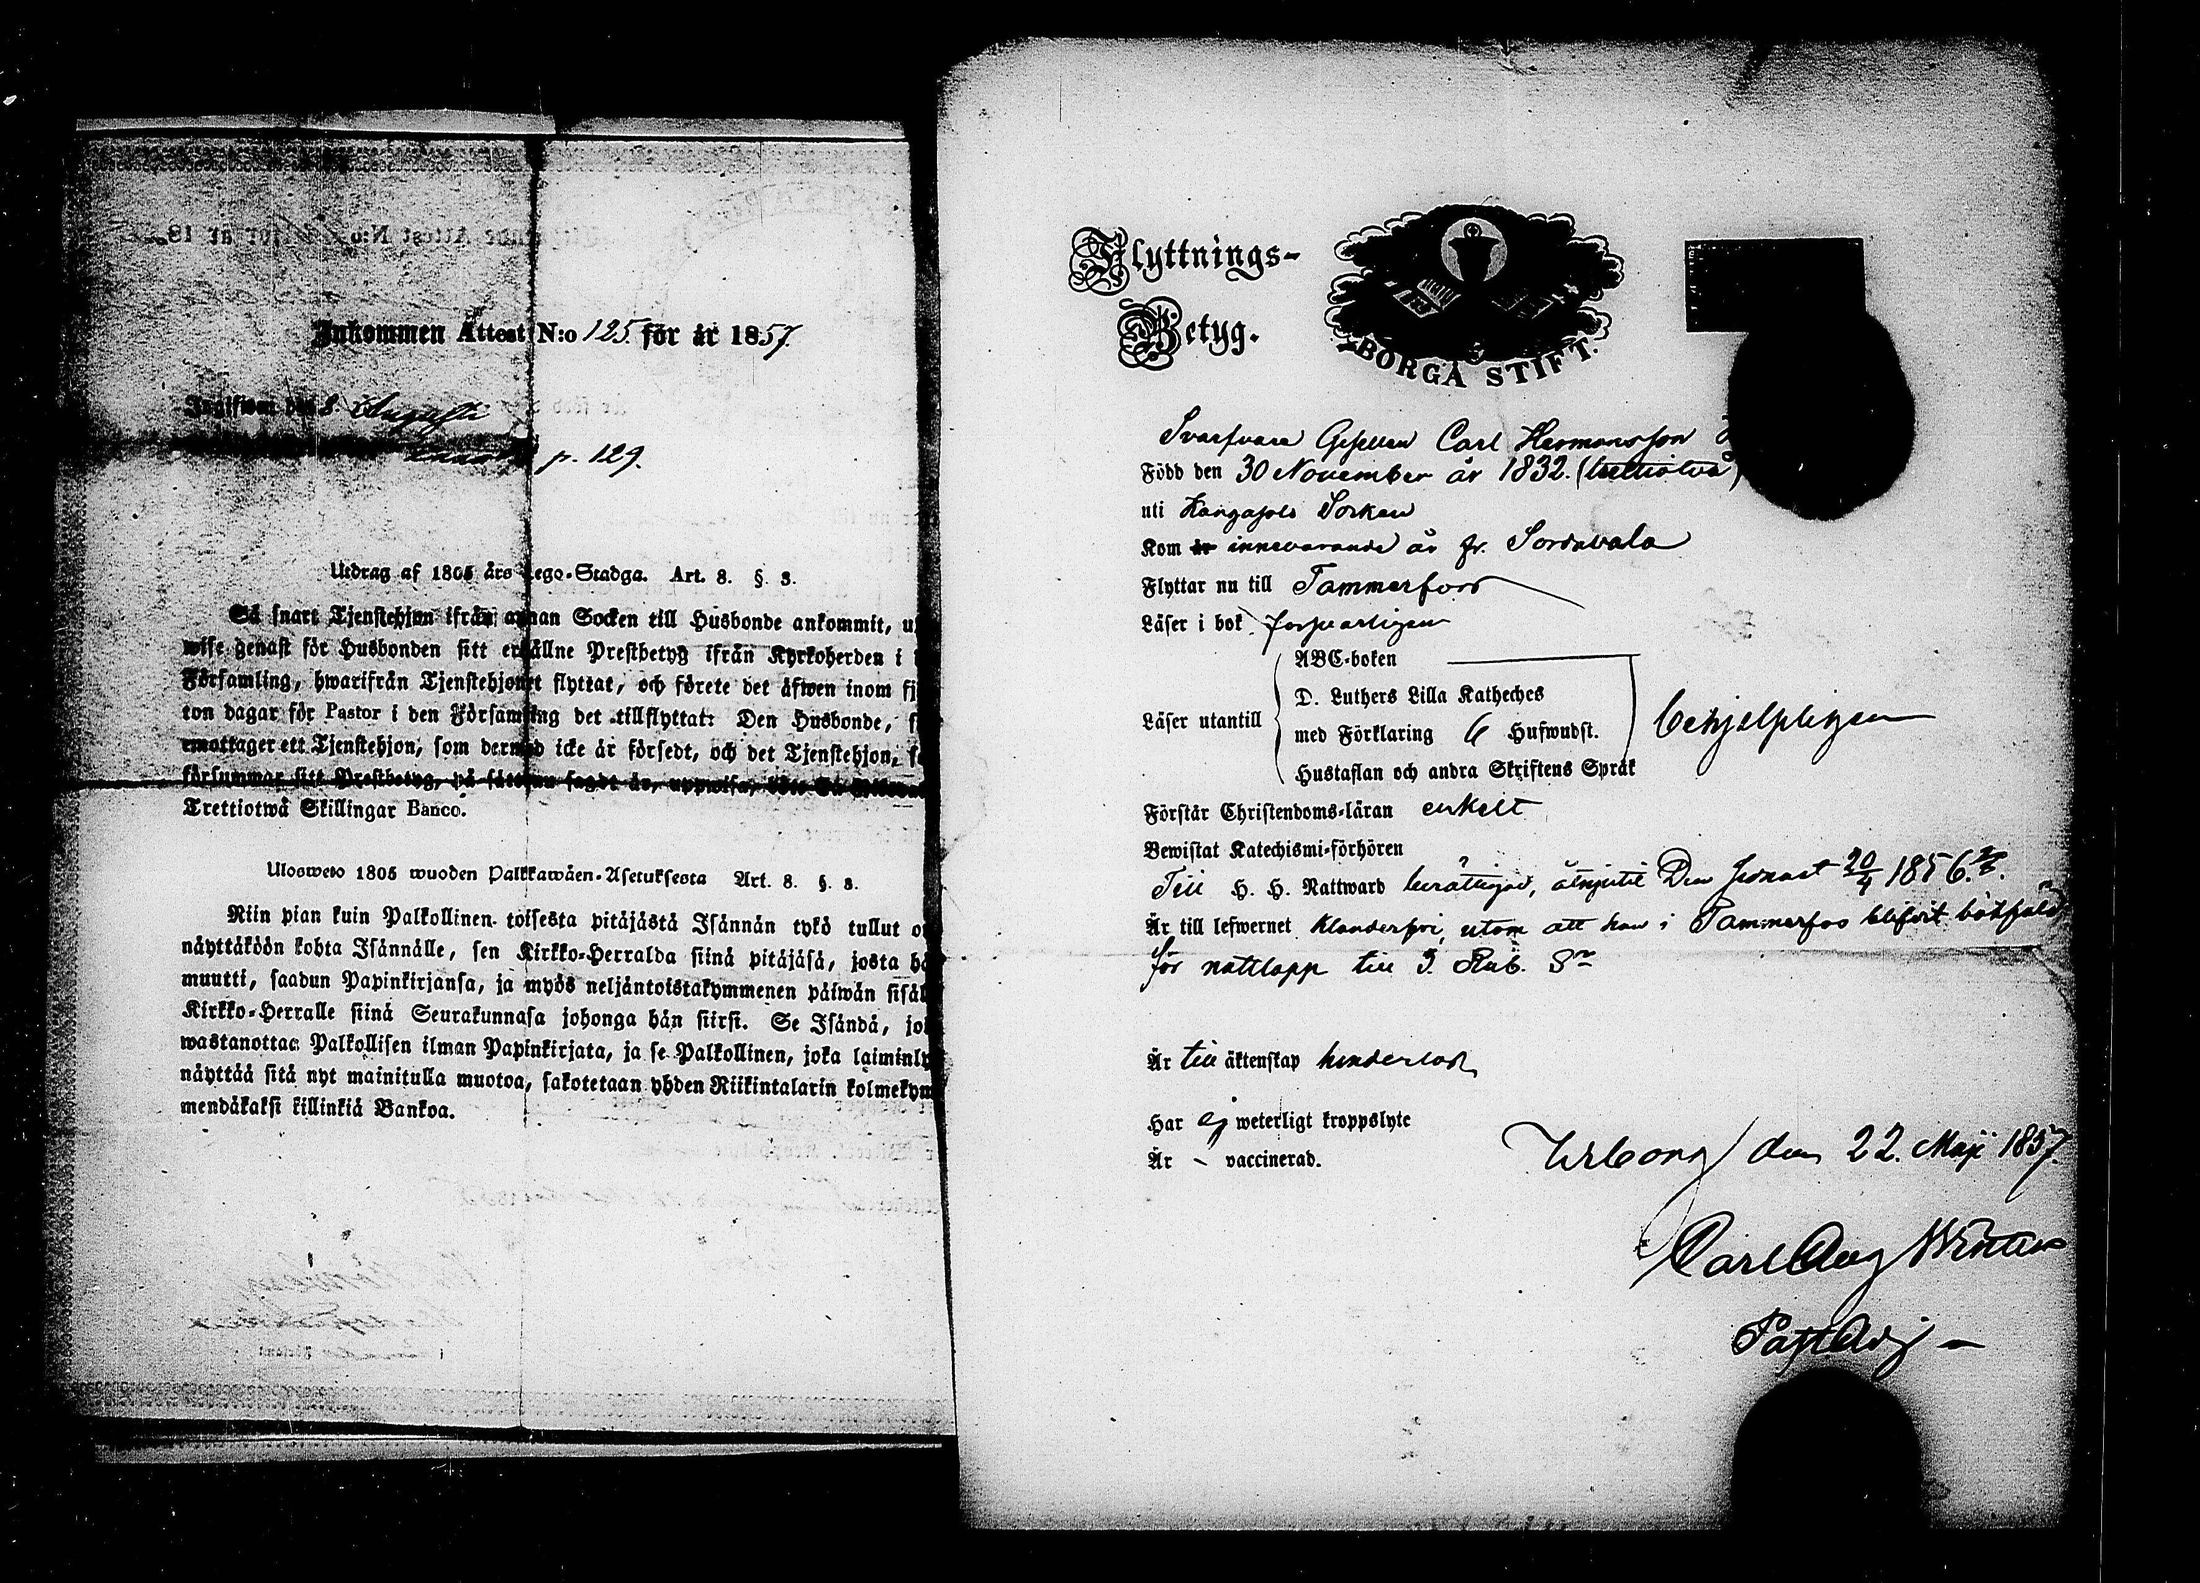 Inkommen Attest N:o 125. för år 1857.
Ingifwen den 8. Augusti
p. 129.
Utdrag af 1805 års Lego-Stadga. Art. 8. §. 3.
Så snart Tjenstehjon ifrån annan Socken till Husbonde ankommit,
wise genast för Husbonden sitt erhållne Prestbetyg ifrån Kyrkoherden i
Församling, hwarifrån Tjenstehjonet flyttat, och förete det äfwen inom
ton dagar för Pastor i den Församling det tillflyttat: Den Husbonde,
emottager ett Tjenstehjon, som dermed icke är försedt, och det Tjenstehjon,
försummar sitt Prestbetyg, på sätt nu sagdt är, uppwisa,
Trettiotwå Skillingar Banco.
Ulosweto 1805 wuoden Palkkawäen-Asetuksesta Art. 8. §. 3.
Niin pian kuin Palkollinen toisesta pitäjästä Isännän tykö tullut
näyttäköön kohta Isännälle, sen Kirkko-Herralda siinä pitäjäsä, josta
muutti, saadun Papinkirjansa, ja myös neljäntoistakymmenen päiwän
Kirkko-Herralle siinä Seurakunnasa johonga hän siirsi. Se Isändä,
wastanottaa Palkollisen ilman Papinkirjata, ja se Palkollinen, joka
näyttää sitä nyt mainitulla muotoa, sakotetaan yhden Riikintalarin
mendäkaksi killinkiä Bankoa.
Flyttnings-
Betyg.
BORGÅ STIFT.
Svarfvare Gesellen Carl Hermansson
Född den 30 November år 1832. (trettiotvå)
uti Kangasala Socken
Kom år innevarande år fr. Sordavala
Flyttar nu till Tammerfors
Läser i bok försvarligen
ABC-boken
D. Luthers Lilla Katheches
Läser utantill med Förklaring 6 Hufwudst. behjelpligen
Hustaflan och andra Skriftens Språk
Förstår Christendoms-läran enkelt
Bewistat Katechismi-förhören
Till H. H. Nattward berättigad, åtnjutit Den senast 20/4 1856.
Är till lefwernet klanderfri, utom att han i Tammerfors blifvit bötfäld
för nattlopp till 3. Rub. Sr
Är till äktenskap hinderlös
Har ej weterligt kroppslyte
Är – vaccinerad.
Wiborg den 22. Maji 1857.
Carl Aug Winter
Past Adj –